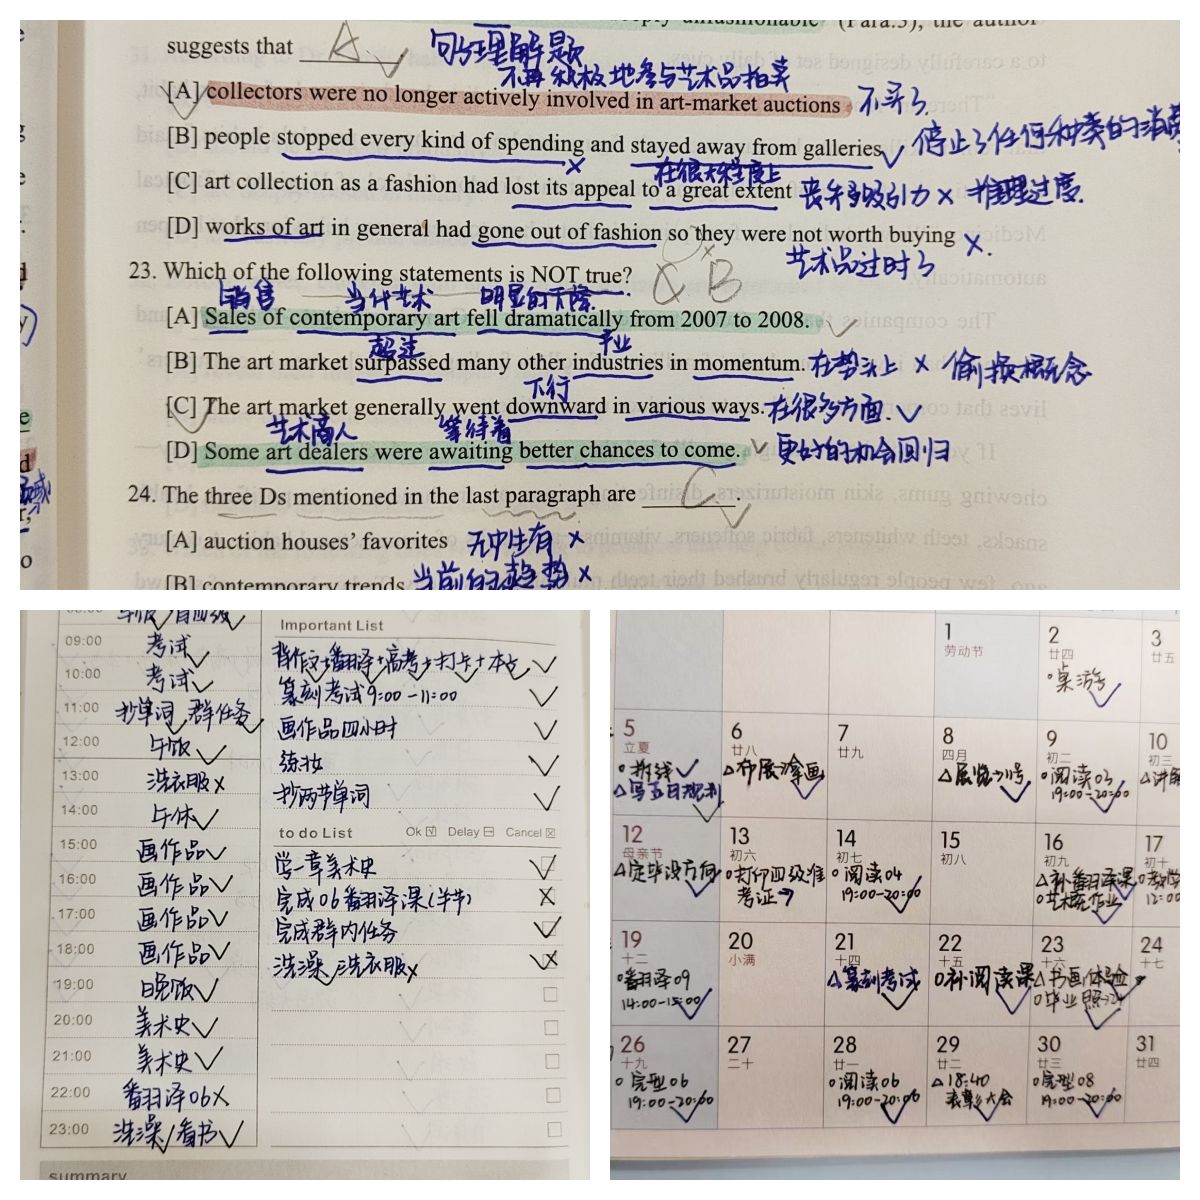 (Para.5), the author
suggests that A
句子理解题
不再积极地参与艺术品拍卖
[A] collectors were no longer actively involved in art-market auctions 不买了
[B] people stopped every kind of spending and stayed away from galleries 停止了任何种类的消费
在很大程度上
[C] art collection as a fashion had lost its appeal to a great extent 丧失了吸引力 × 推理过度.
[D] works of art in general had gone out of fashion so they were not worth buying ×.
艺术品过时了
23. Which of the following statements is NOT true? C B
销售 当代艺术 明显的下降.
[A] Sales of contemporary art fell dramatically from 2007 to 2008.
超过 产业
[B] The art market surpassed many other industries in momentum. 在势头上 × 偷换概念
下行
[C] The art market generally went downward in various ways. 在很多方面.
艺术商人 等待着
[D] Some art dealers were awaiting better chances to come. 更好的机会回归
24. The three Ds mentioned in the last paragraph are C .
[A] auction houses' favorites 无中生有 ×
[B] contemporary trends 当前的趋势 ×
09:00 考试
10:00 考试
11:00 抄单词 群任务
12:00 午饭
13:00 洗衣服 ×
14:00 午休
15:00 画作品
16:00 画作品
17:00 画作品
18:00 画作品
19:00 晚饭
20:00 美术史
21:00 美术史
22:00 翻译06 ×
23:00 洗澡/看书
summary
Important List
背作文+翻译+高考+打卡+本
篆刻考试9:00-11:00
画作品四小时
练妆
抄两节单词
to do List Ok Delay Cancel
学一章美术史
完成06翻译课(半节)
完成群内任务
洗澡/洗衣服×
1 劳动节
2 廿四
桌游
3 廿五
5 立夏
拆线
写五月规划
6 廿八
布展涂画
7 廿九
8 四月
展览→11号
9 初二
阅读03
19:00-20:00
10 初三
12 母亲节
定毕设方向
13 初六
打印四级准
考证→
14 初七
阅读04
19:00-20:00
15 初八
16 初九
补翻译课
艺术概作业
17 初十
12:00
19 十二
翻译09
14:00-15:00
20 小满
21 十四
篆刻考试
22 十五
补阅读课
23 十六
书画体验
毕业照→24
24 十七
26 十九
完型06
19:00-20:00
27 二十
28 廿一
阅读06
19:00-20:00
29 廿二
18:40
表彰大会
30 廿三
完型08
19:00-20:00
31 廿四